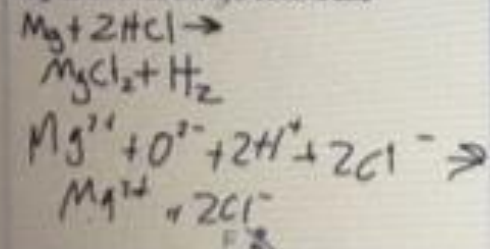 Mg + 2HCl →
MgCl₂ + H₂
Mg²⁺ + O²⁻ + 2H⁺ + 2Cl⁻ →
Mg²⁺ 2Cl⁻